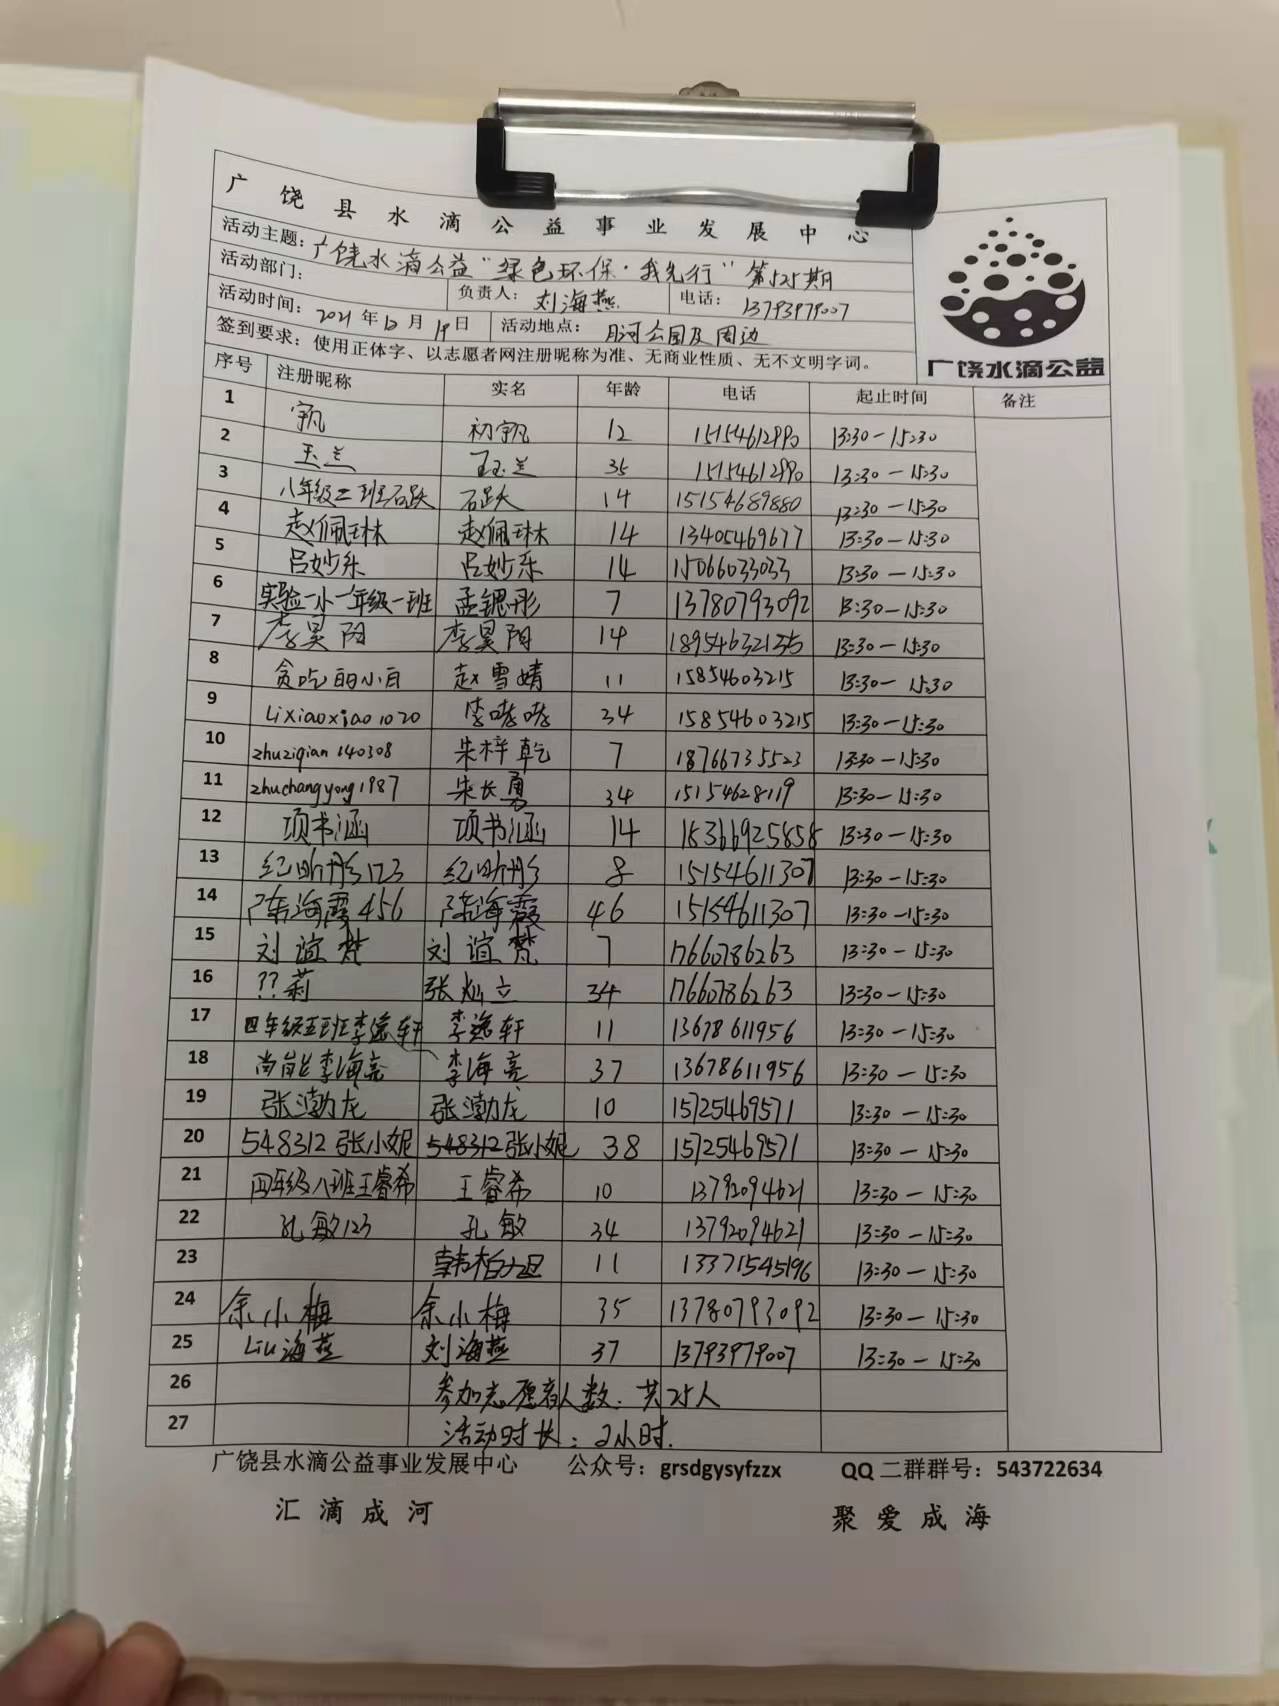 广饶县水滴公益事业发展中心
活动主题：广饶水滴公益"绿色环保·我先行"第525期
活动部门： 负责人：刘海燕 电话：13793979007
活动时间：2021年12月19日 活动地点：月河公园及周边
签到要求：使用正体字、以志愿者网注册昵称为准、无商业性质、无不文明字词。
广饶水滴公益
序号 注册昵称 实名 年龄 电话 起止时间 备注
1 宇帆 初宇帆 12 15154612990 13:30-15:30
2 玉兰 王玉兰 35 15154612990 13:30-15:30
3 八年级二班石跃 石跃 14 15154689880 13:30-15:30
4 赵佩琳 赵佩琳 14 13405469677 13:30-15:30
5 吕妙乐 吕妙乐 14 15066033033 13:30-15:30
6 实验一小一年级一班 孟锶彤 7 13780793092 13:30-15:30
7 李昊阳 李昊阳 14 13:30-15:30
8 贪吃的小白 赵雪婧 11 15854603215 13:30-15:30
9 Lixiaoxiao1020 李哮哮 34 15854603215 13:30-15:30
10 zhuziqian140308 朱梓乾 7 18766735523 13:30-15:30
11 zhuchangyong1987 朱长勇 34 15154628119 13:30-15:30
12 项书涵 项书涵 14 18366925858 13:30-15:30
13 纪昕彤123 纪昕彤 8 15154611307 13:30-15:30
14 陈海霞456 陈海霞 46 15154611307 13:30-15:30
15 刘谊梵 刘谊梵 7 17660786263 13:30-15:30
16 ??莉 张灿立 34 17660786263 13:30-15:30
17 四年级五班李逸轩 李逸轩 11 13678611956 13:30-15:30
18 尚岗李海亮 李海亮 37 13678611956 13:30-15:30
19 张渤龙 张渤龙 10 15725469571 13:30-15:30
20 548312张小妮 548312张小妮 38 15725469571 13:30-15:30
21 四年级八班王睿希 王睿希 10 13792094621 13:30-15:30
22 孔敏123 孔敏 34 13792094621 13:30-15:30
23 韩柏 11 13371545196 13:30-15:30
24 余小梅 余小梅 35 13780793092 13:30-15:30
25 Liu海燕 刘海燕 37 13793979007 13:30-15:30
26 参加志愿者人数：共25人
27 活动时长：2小时.
广饶县水滴公益事业发展中心 公众号：grsdgysyfzzx QQ二群群号：543722634
汇滴成河 聚爱成海